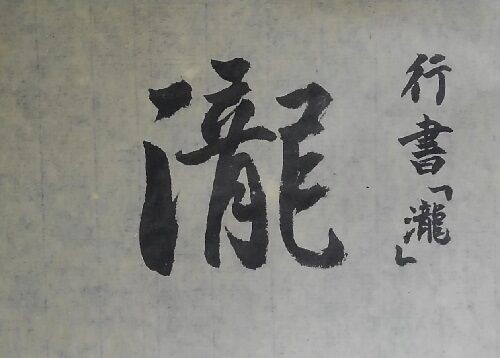 行書「瀧」
瀧